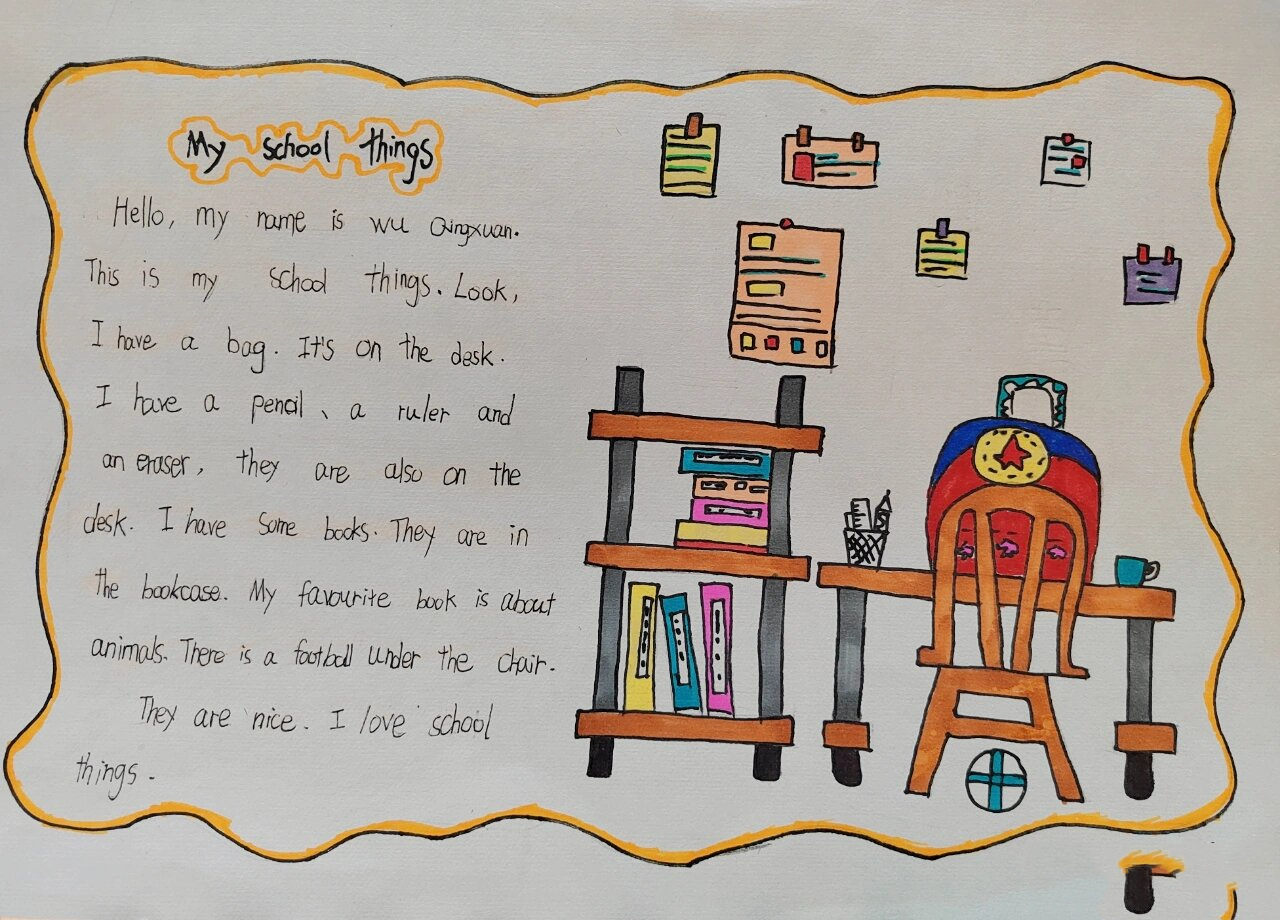 My school things
Hello, my name is wu Qingxuan.
This is my school things. Look,
I have a bag. It's on the desk.
I have a pencil、a ruler and
an eraser, they are also on the
desk. I have some books. They are in
the bookcase. My favourite book is about
animals. There is a football under the chair.
They are nice. I love school
things.